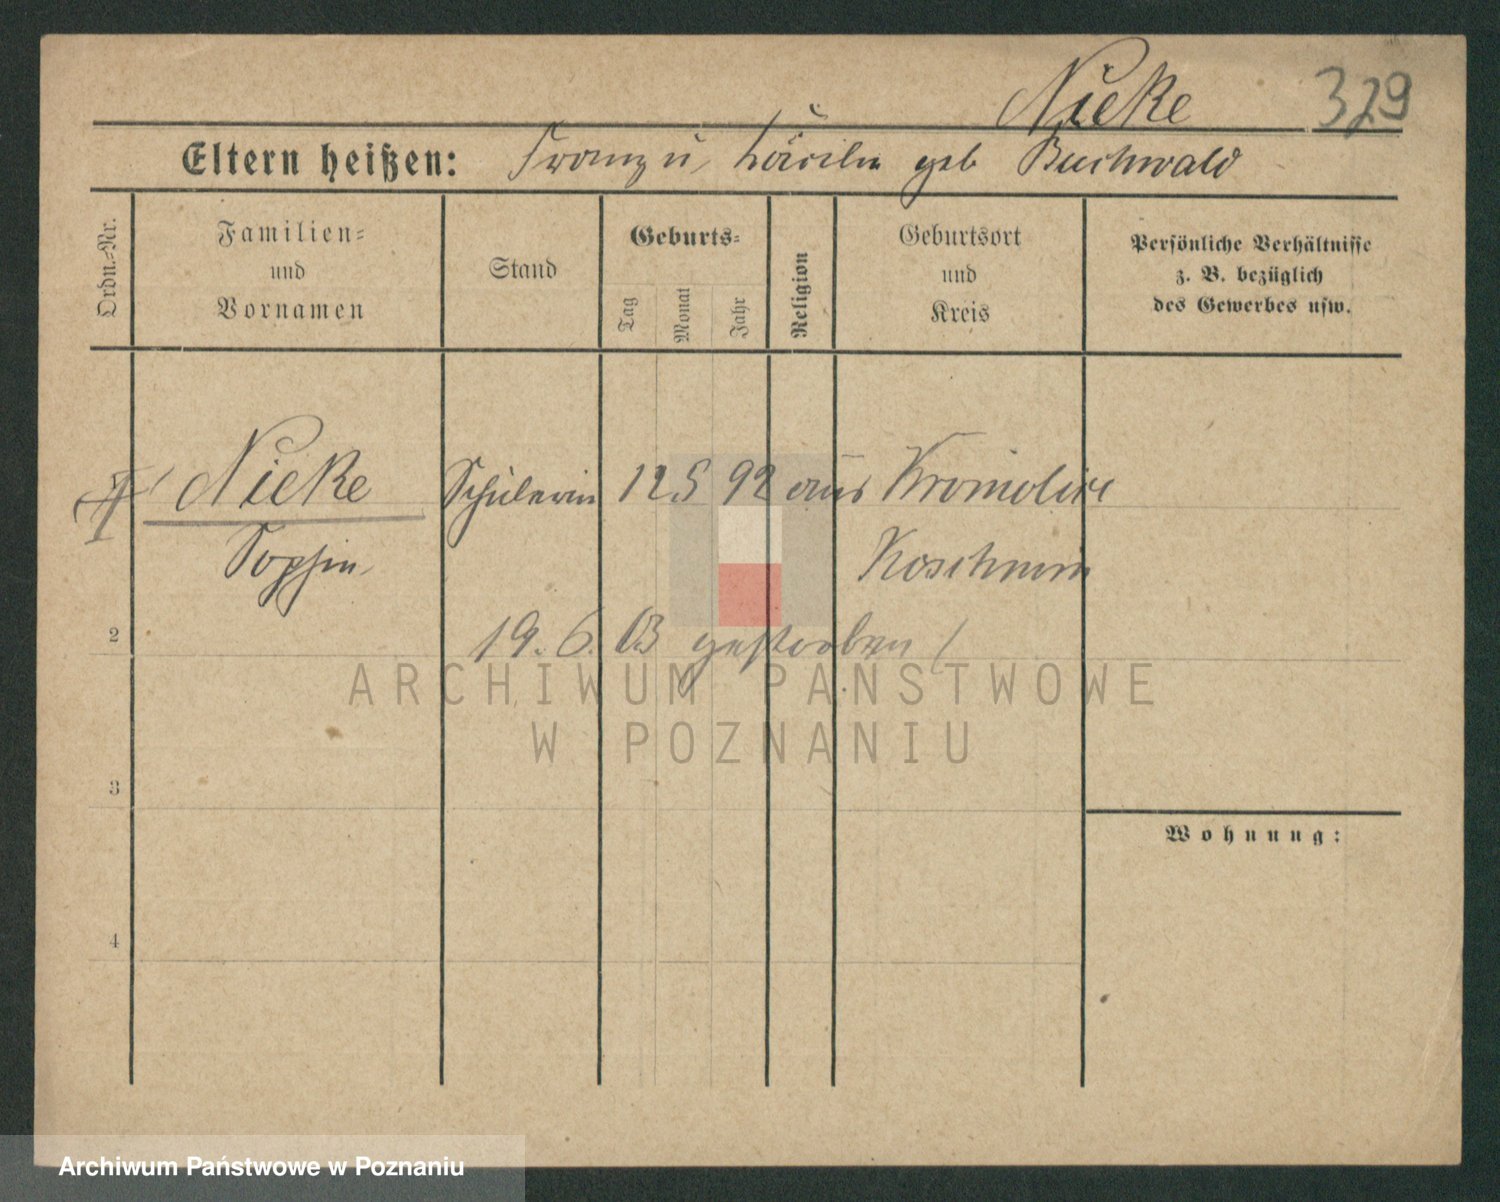 Nieke 329
Eltern heißen: Franz u. Cäcilie geb Buchwald
Ordn.-Nr.
Familien-
und
Vornamen
Stand
Geburts-
Tag
Monat
Jahr
Religion
Geburtsort
und
Kreis
Persönliche Verhältnisse
z. B. bezüglich
des Gewerbes usw.
Nieke Schülerin 12 5 92 aus Kromolice
Sophie Koschmin
2
19. 6. 03 gestorben
ARCHIWUM PAŃSTWOWE
W POZNANIU
3
Wohnung:
4
Archiwum Państwowe w Poznaniu